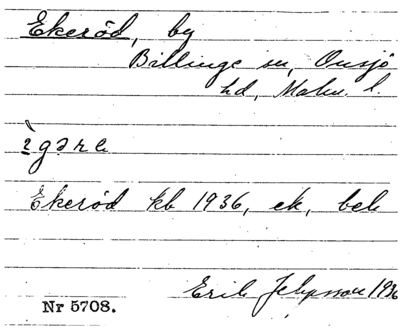 Ekeröd, by
Billinge sn, Onsjö
hd, Malm. l.
ègǝrǝ
Ekeröd kb 1936, ek, beb
Nr 5708.
Erik 1936